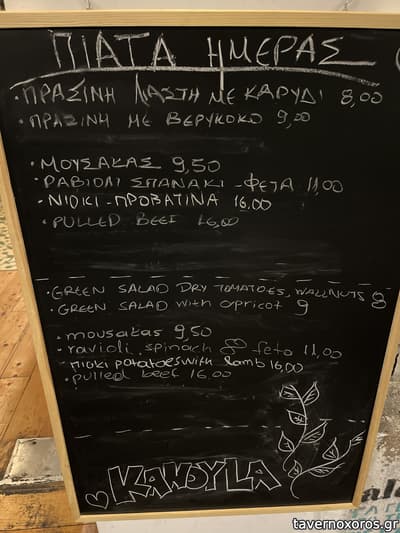 ΠΙΑΤΑ ΗΜΕΡΑΣ
· ΠΡΑΣΙΝΗ ΛΑΣΤΗ ΜΕ ΚΑΡΥΔΙ 8,00
· ΠΡΑΣΙΝΗ ΜΕ ΒΕΡΥΚΟΚΟ 9,00
· ΜΟΥΣΑΚΑΣ 9,50
· ΡΑΒΙΟΛΙ ΣΠΑΝΑΚΙ - ΦΕΤΑ 11,00
· ΝΙΟΚΙ - ΠΡΟΒΑΤΙΝΑ 16.00
· PULLED BEEF 16,00
· GREEN SALAD DRY TOMATOES, WALLNUTS 8
· GREEN SALAD with apricot 9
· mousakas 9,50
· ravioli spinach feta 11,00
· nioki potatoes with lamb 16,00
· pulled beef 16.00
KANOYLA
tavernoxoros.gr